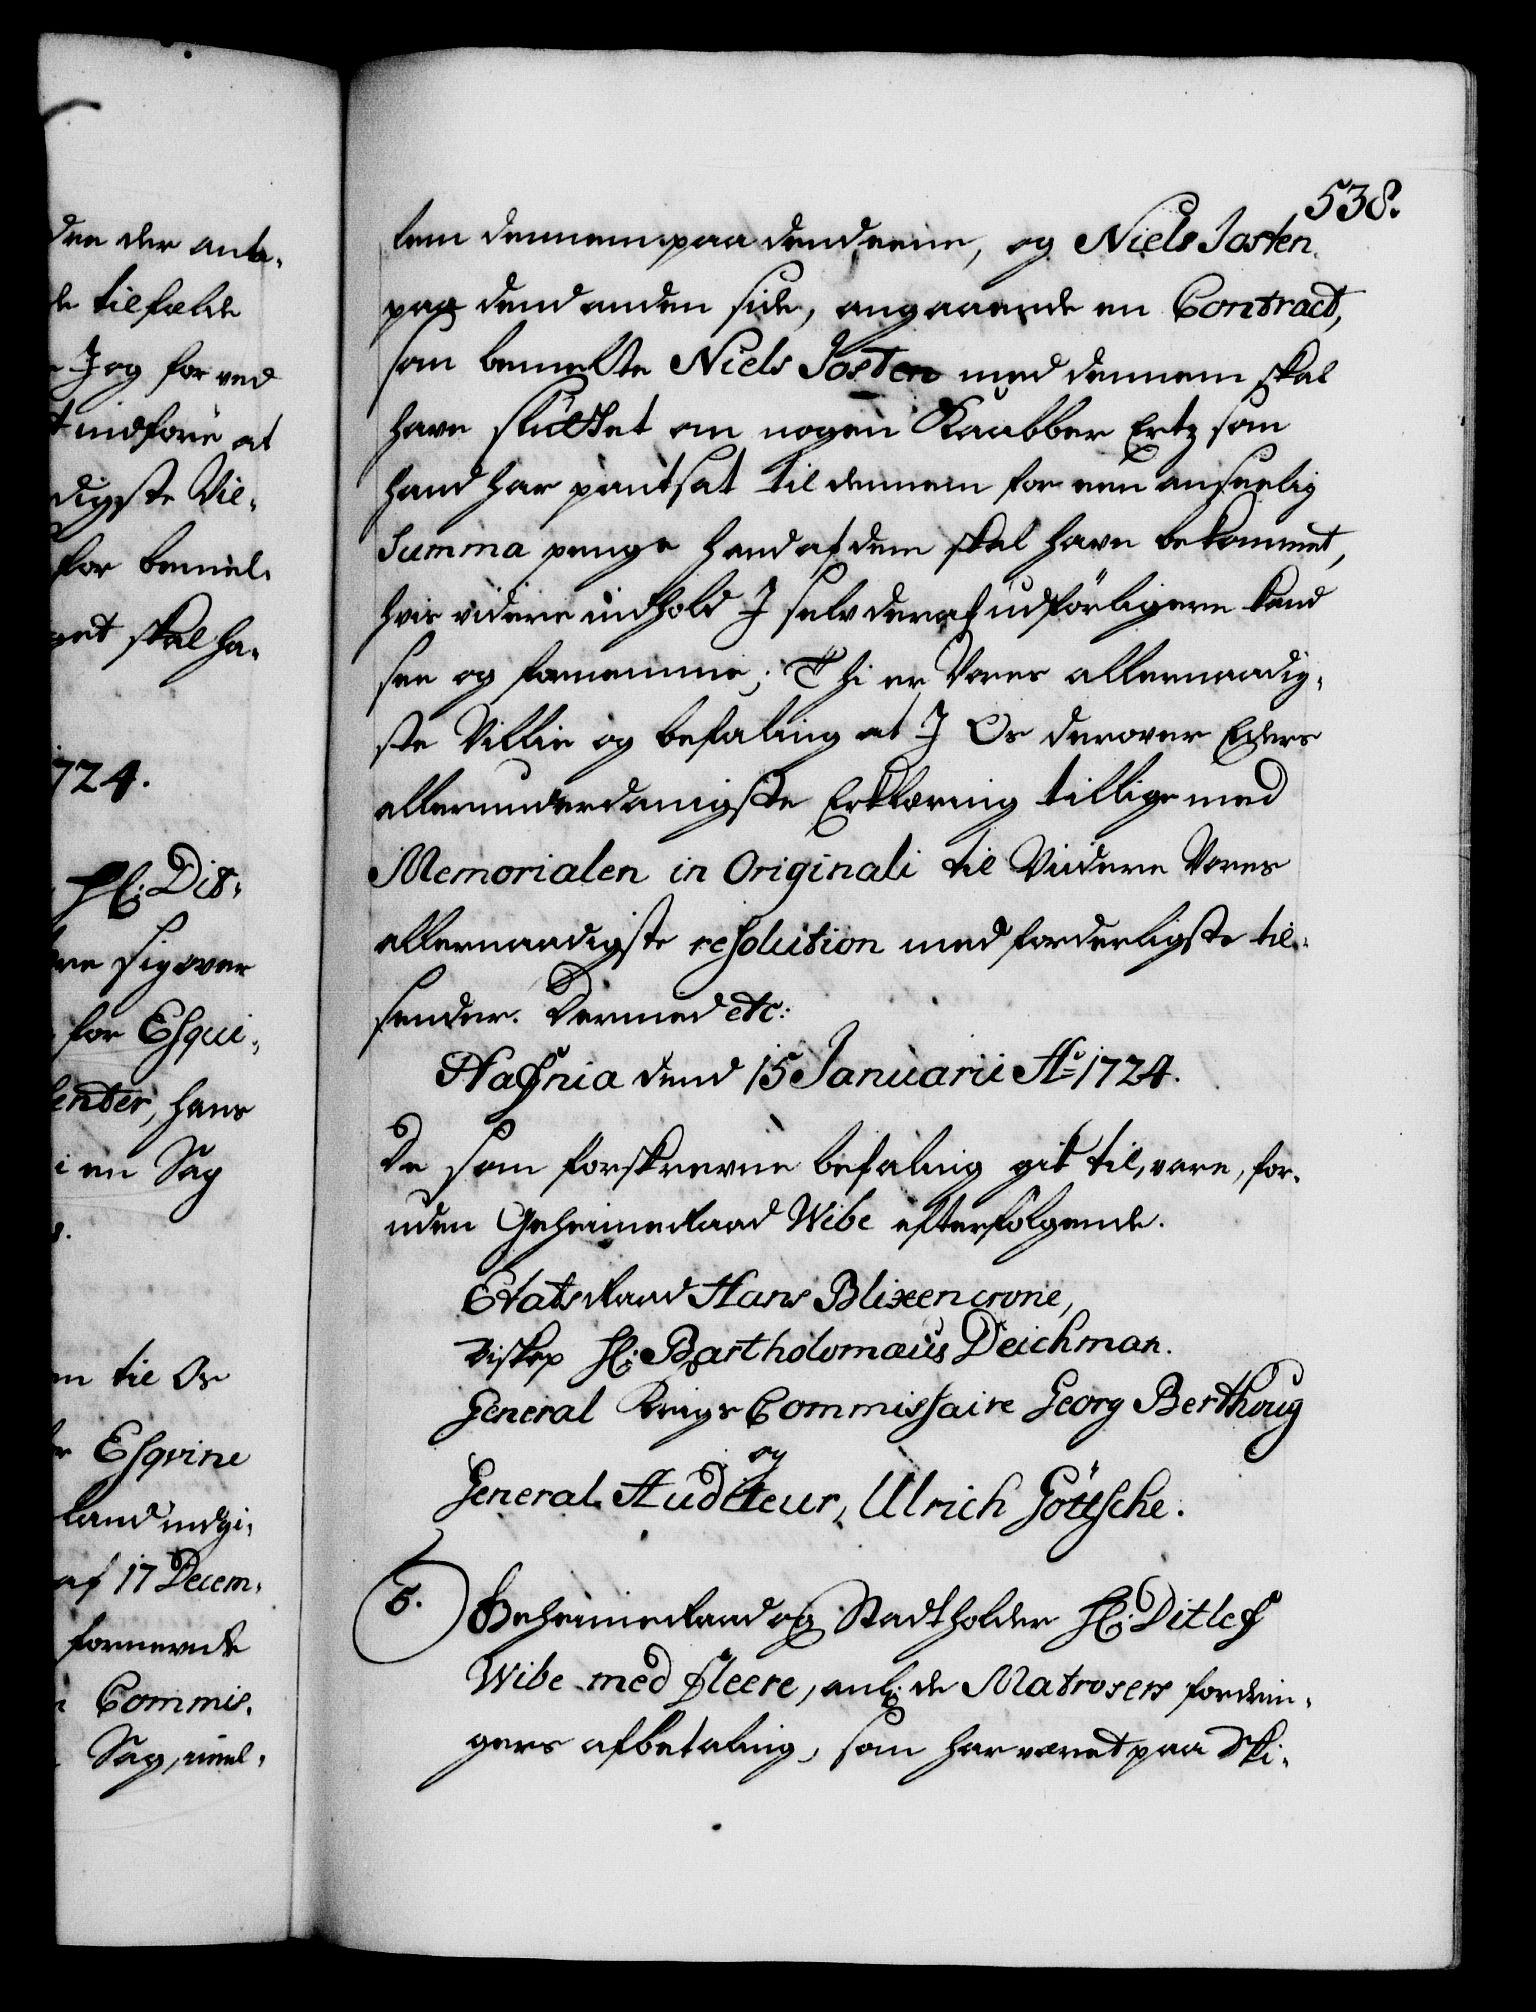 538.
lem dennem paa dend eene, og Niels Josten
paa dend anden side, angaaende en Contract,
som bemelte Niels Josten med dennem skal
have sluttet om nogen Kaabber Ertz som
hand har pantsat til dennem for een anseelig
Summa penge hand af dem skal have bekommet,
hvis videre indhold J selv deraf udförligere kand
see og fornemme; Thi er Vores allernaadig-
ste Villie og befaling at J Os derover Eders
allerunderdanigste Erklæring tillige med
Memorialen in Originali til Viidere Vores
allernaadigste resolution med forderligste til-
sender. Dermed etc:
Hafnia dend 15 Januarii Ao 1724.
De som forskrevne befaling gik til, vare, for-
uden Geheimeraad Wibe efterfölgende.
Etatsraad Hans Blixencrone,
Biskop Hr: Bartholomæus Deichman.
General Krigs Commissaire Georg Berthoug
og
General Auditeur, Ulrich Göttsche.
5. Geheimeraad og Stadtholder Hr: Ditlef
Wibe med fleere, anl: de Matrosers fordrin-
gers afbetaling, som har været paa Ski-
den der anta-
de tilfælde
J og for ved
indföre at
digste Vil-
for bemel-
get skal ha-
1724.
Hr: Dit-
re sig over
for Esqui-
hans
i en Sag
til Os
Esqvine
land indgi-
af 17 Decem-
fornevnte
Commis-
Sag, imel-